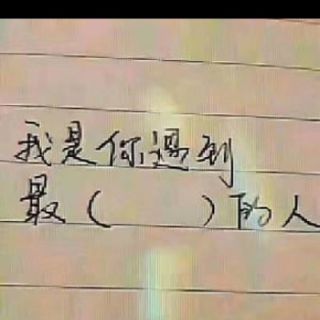 我是你遇到
最（　　）的人